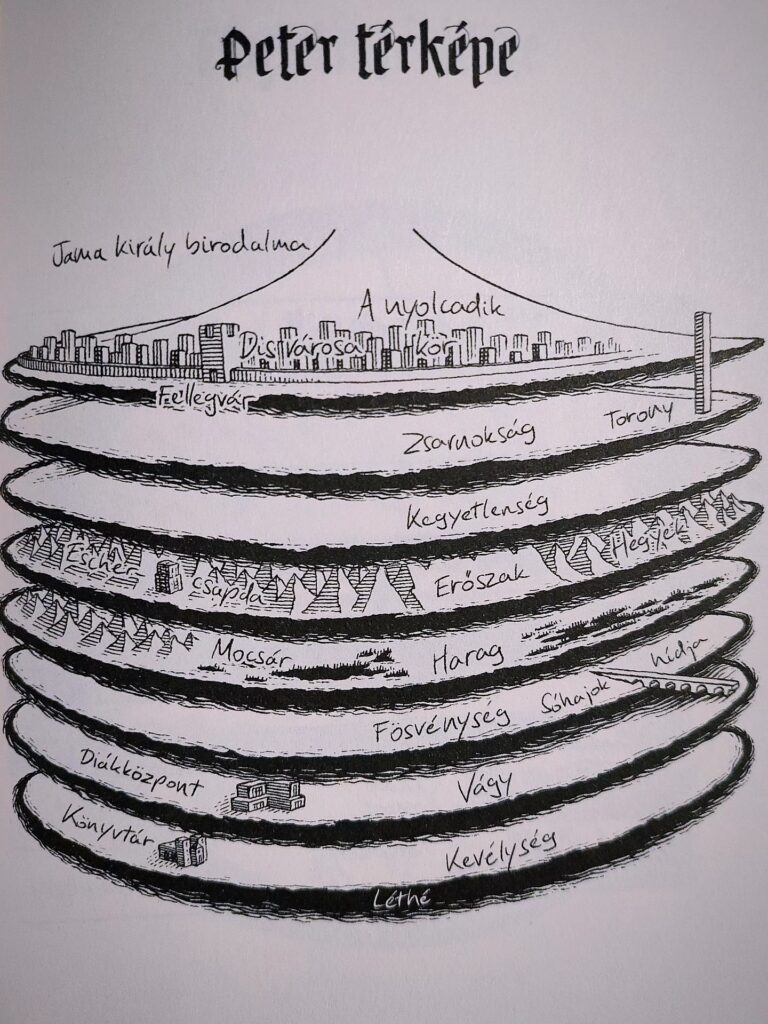 Peter térképe
Jama király birodalma
A nyolcadik
Dis városa
kör
Fellegvár
Torony
Zsarnokság
Kegyetlenség
Hegyek
Escher
csapda
Erőszak
Mocsár
Harag
Sóhajok hídja
Fösvénység
Diákközpont
Vágy
Könyvtár
Kevélység
Léthé